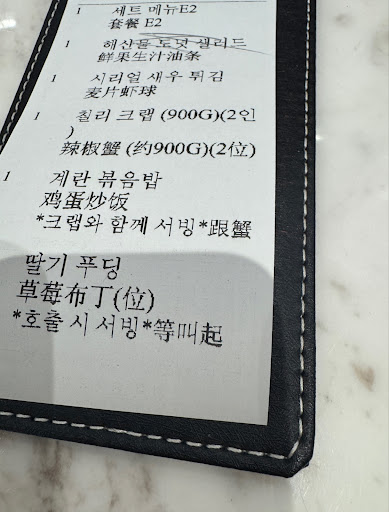 1 세트 메뉴E2
套餐 E2
1 해산물 도넛 샐러드
鮮果生汁油条
1 시리얼 새우 튀김
麦片虾球
1 칠리 크랩 (900G)(2인
)
辣椒蟹 (约900G)(2位)
1 계란 볶음밥
鸡蛋炒饭
*크랩와 함께 서빙*跟蟹
딸기 푸딩
草莓布丁(位)
*호출 시 서빙*等叫起